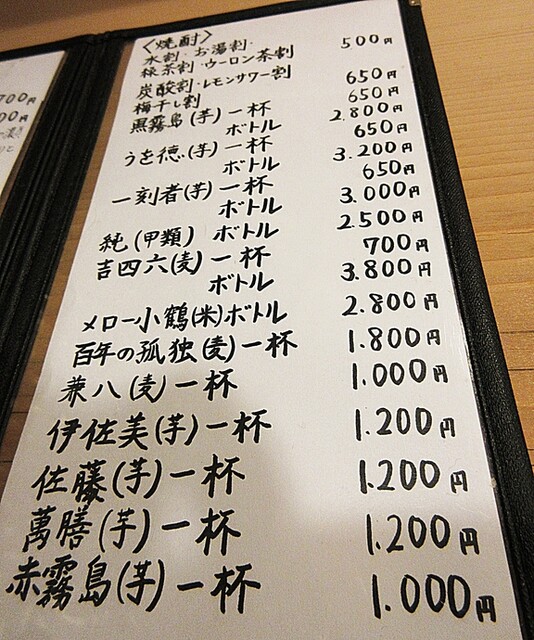 700円
00円
〈焼酎〉
水割・お湯割・
緑茶割・ウーロン茶割 500円
炭酸割・レモンサワー割 650円
梅干し割
黒霧島(芋)一杯 650円
ボトル 2.800円
うを徳(芋)一杯 650円
ボトル 3.200円
一刻者(芋)一杯 650円
ボトル 3.000円
純(甲類)ボトル 2.500円
吉四六(麦)一杯 700円
ボトル 3.800円
メロー小鶴(米)ボトル 2.800円
百年の孤独(麦)一杯 1.800円
兼八(麦)一杯 1.000円
伊佐美(芋)一杯 1.200円
佐藤(芋)一杯 1.200円
萬膳(芋)一杯 1.200円
赤霧島(芋)一杯 1.000円